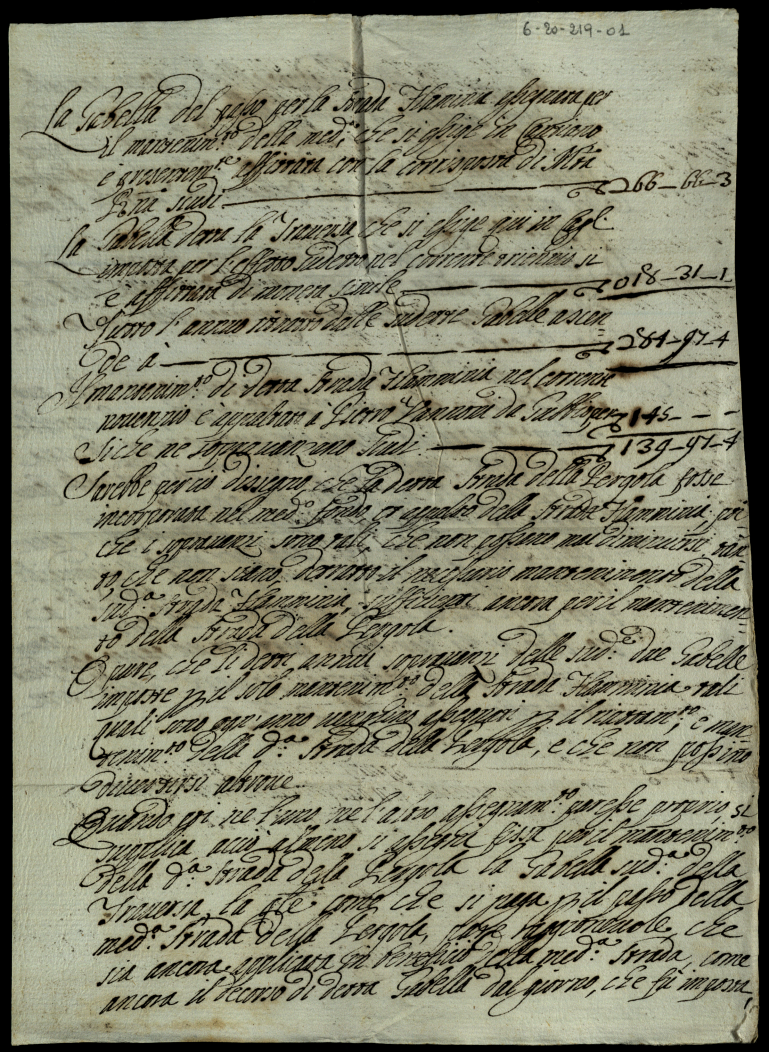 6-20-219-01
La Gabella del passo per la Strada Flaminia assegnata per
il mantenim.to della med.a, che si esige in Cantiano
è presentem.te affittata con la corrisposta di M.ta
Rñã scudi 266-66-3
La Gabella detta la Traversa che si esige qui in Cagl.
imposta per l'effetto sudetto nel corrente novennio si
è affittata di moneta simile 018-31-1
Tutto l'annuo ritratto dalle sudette Gabelle ascen
de à 284-97-4
Il mantenim.to di detta Strada Flamminia nel corrente
novennio è appaltato a Pietro da Gubbio per 145 - -
Siche ne sopravanzano scudi 139-97-4
Sarebbe perciò disegno, che la detta Strada della Pergola fosse
incorporata nel med.o fondo et appalto della Strada Flamminia, poi
che i sopravanzi sono tali, che non possono mai diminuirsi tan
to che non siano, detratto il necessario mantenimento della
sud.a Strada Flamminia, sufficienti ancora per il mantenimen
to della Strada della Pergola.
Opure, che li detti annui sopravanzi delle sud.e due Gabelle
imposte p il solo mantenim.to della Strada Flamminia tali
quali sono ogn'anno venghino assegnati p il riattam.to, e man
tenim.to della d.a Strada della Pergola, e che non possino
divertirsi altrove.
Quando poi ne l'uno, ne l'altro assegnam.to paresse proprio, si
supplica, acciò almeno si assegni per il mantenim.to
della d.a Strada della Pergola la Gabella sud.a della
Traversa, la qle come che si paga p il passo della
med.a Strada della Pergola, pare ragionevole, che
sia ancora applicata in beneficio della med.a Strada, come
ancora il decorso di detta Gabella dal giorno, che fù imposta,